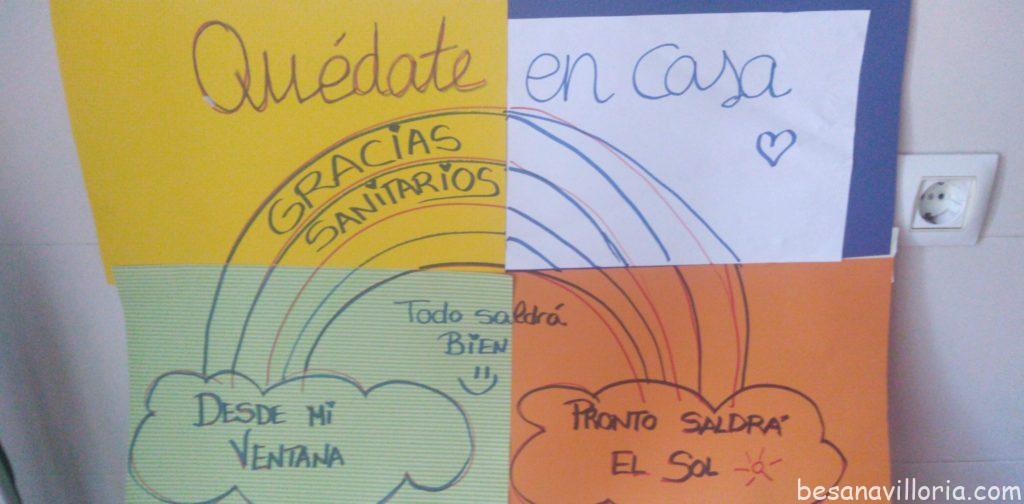 Quédate en casa
GRACIAS
SANITARIOS
Todo saldrá
BIEN
DESDE MI
VENTANA
PRONTO SALDRÁ
EL SOL
besanavilloria.com